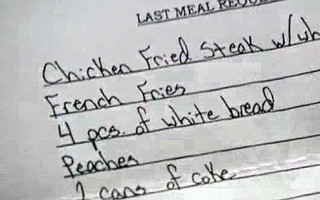 LAST MEAL
Chicken Fried Steak w/
French Fries
4 pcs. of white bread
Peaches
2 cans of coke